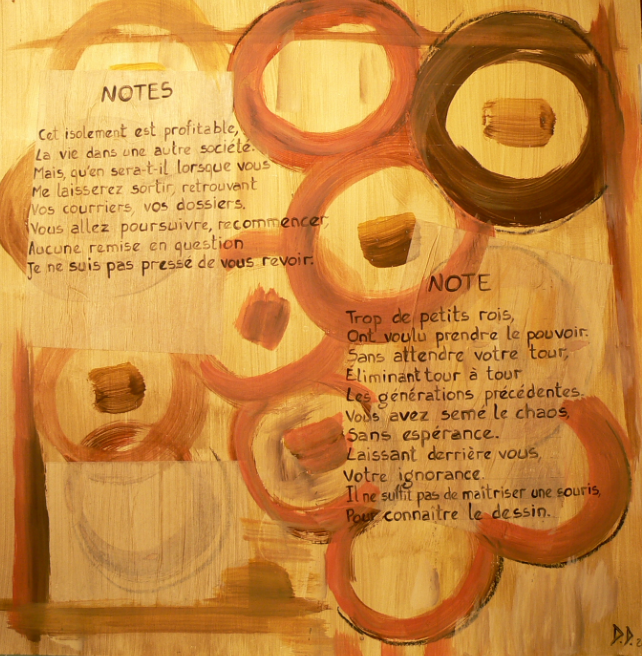 NOTES
Cet isolement est profitable,
La vie dans une autre société.
Mais, qu'en sera-t-il lorsque vous
Me laisserez sortir, retrouvant
Vos courriers, vos dossiers.
Vous allez poursuivre, recommencer,
Aucune remise en question
Je ne suis pas pressé de vous revoir.
NOTE
Trop de petits rois,
Ont voulu prendre le pouvoir.
Sans attendre votre tour,
Éliminant tour à tour
Les générations précédentes.
Vous avez semé le chaos,
Sans espérance..
Laissant derrière vous,
Votre ignorance.
Il ne suffit pas de maîtriser une souris,
Pour connaitre le dessin.
D.D.